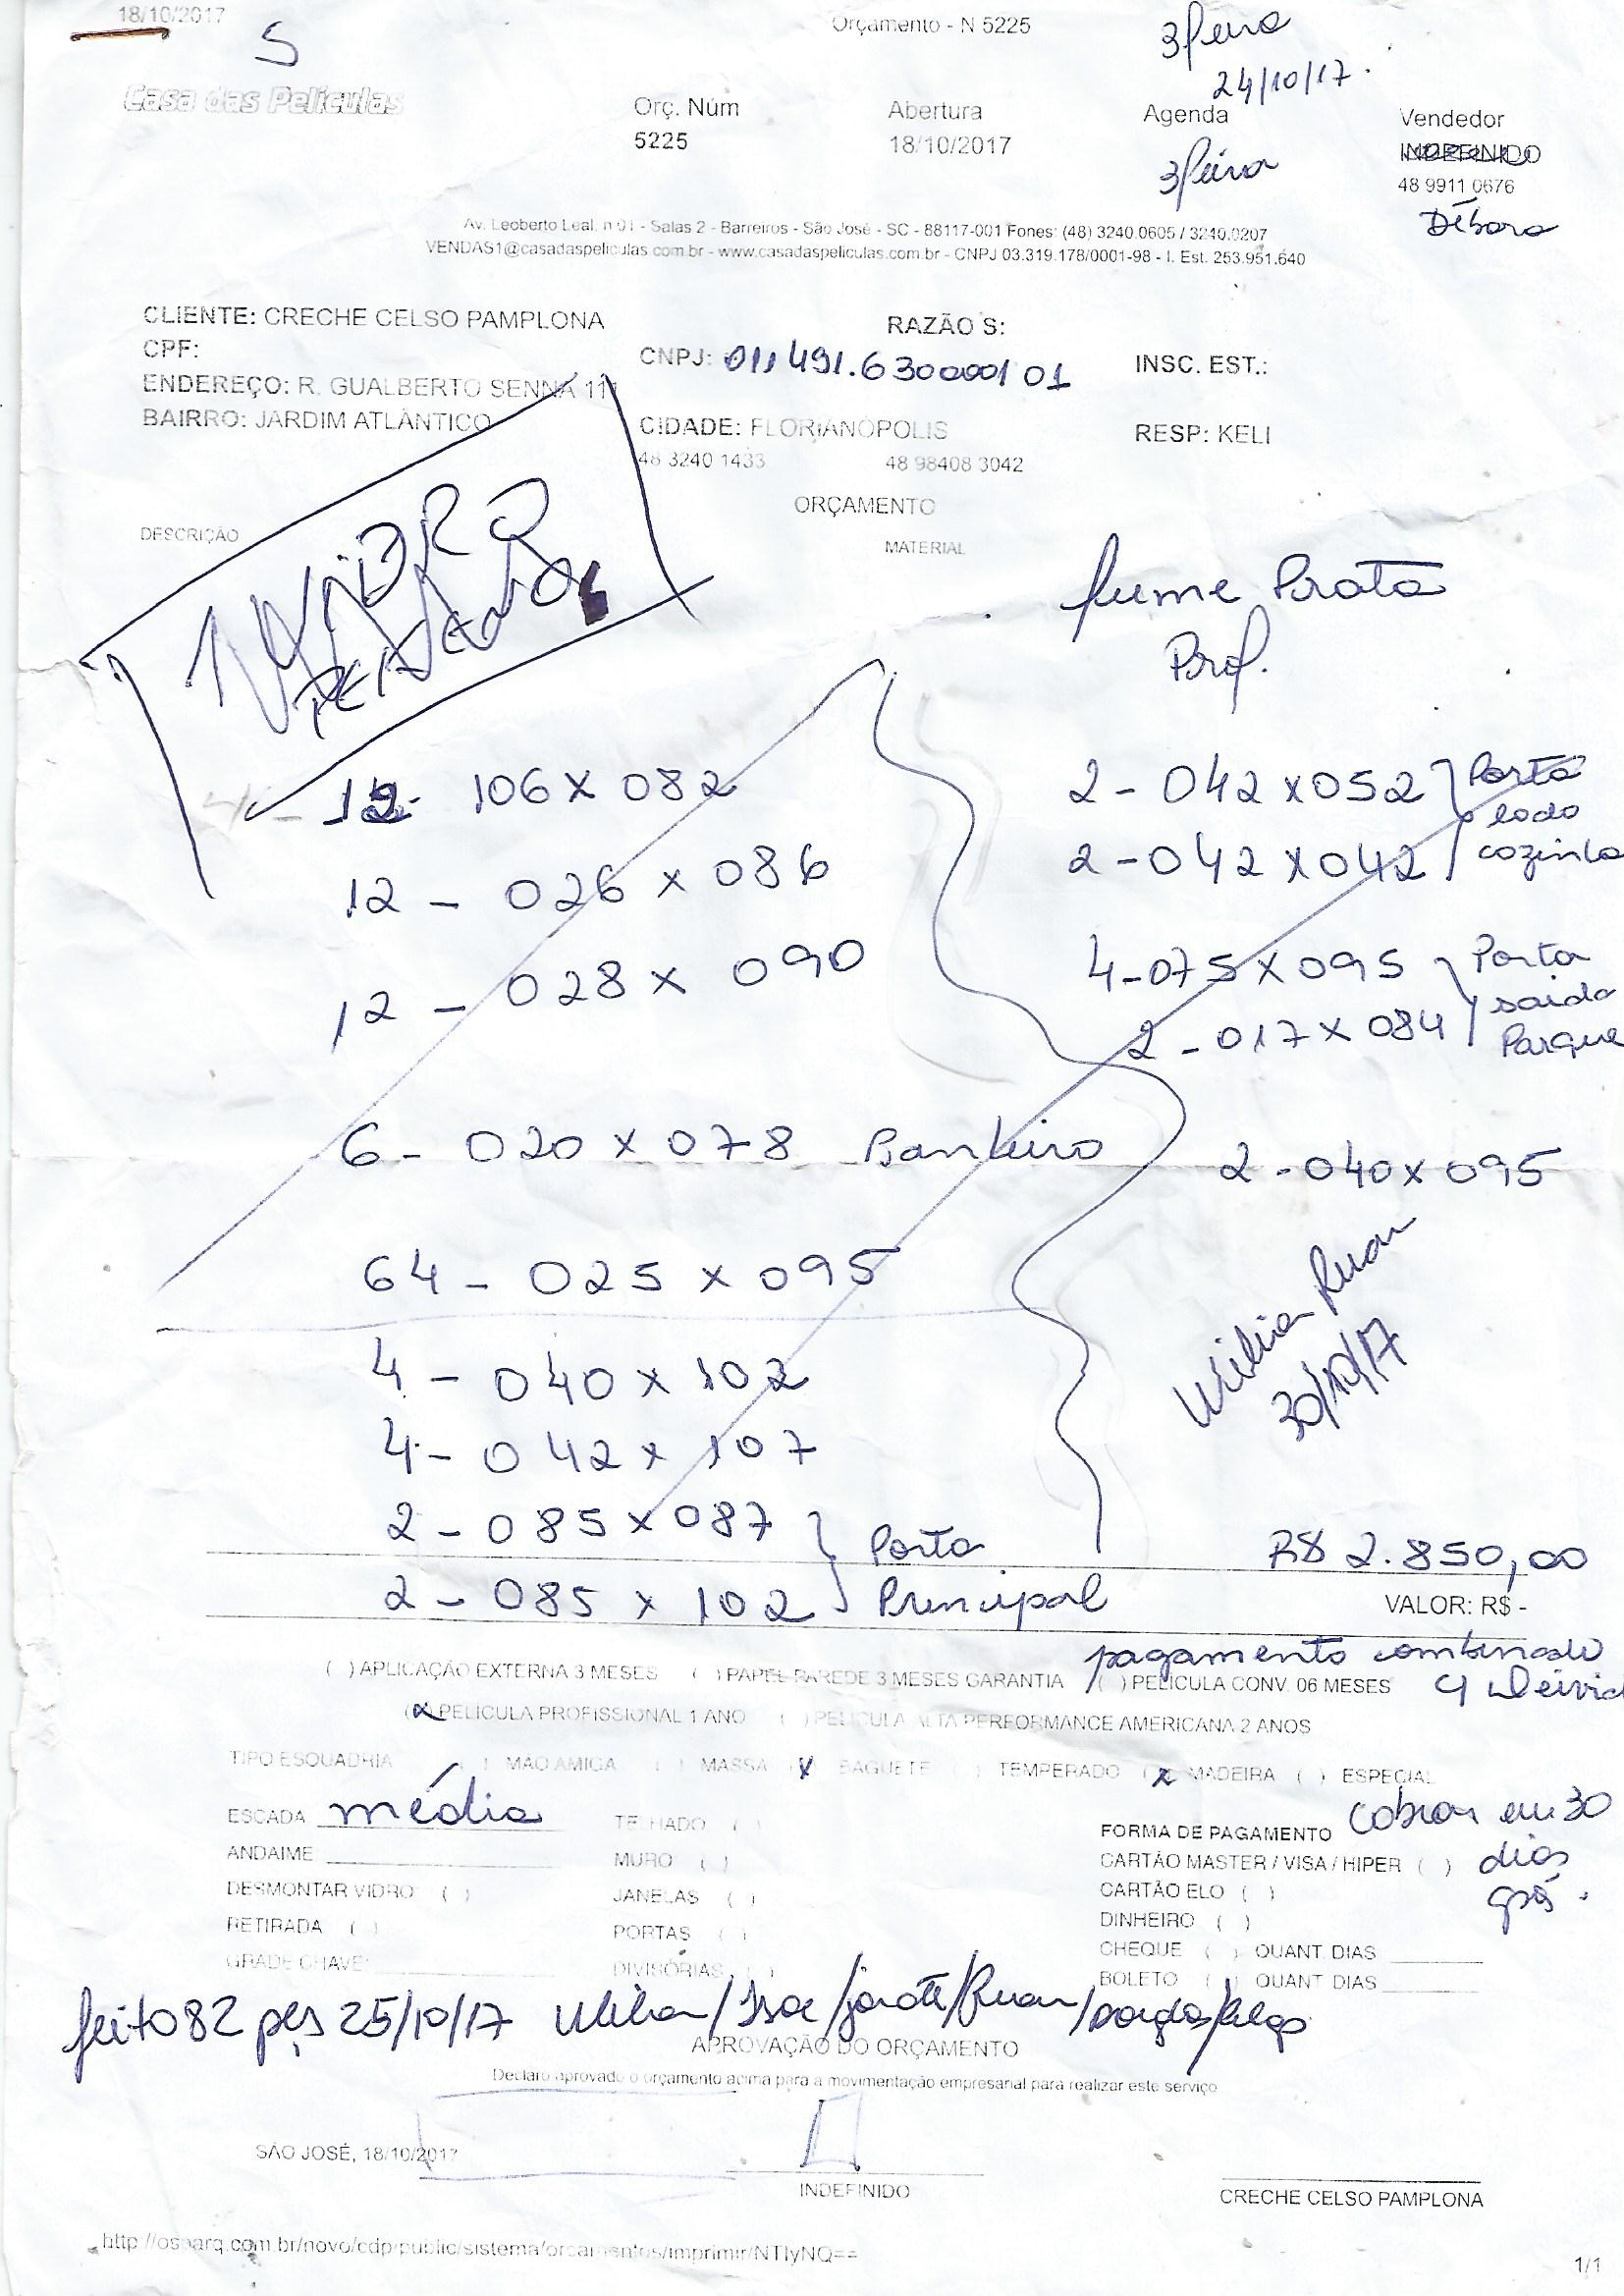 18/10/2017
Orçamento - N 5225
3 feira
24/10/17.
S
Casa das Películas
Orç. Núm
5225
Abertura
18/10/2017
Agenda
3 feira
Vendedor
INDEFINIDO
48 9911 0676
Débora
Av. Leoberto Leal, n 01 - Salas 2 - Barreiros - São José - SC - 88117-001 Fones: (48) 3240.0605 / 3240.0207
VENDAS1@casadaspeliculas.com.br - www.casadaspeliculas.com.br - CNPJ 03.319.178/0001-98 - I. Est. 253.951.640
CLIENTE: CRECHE CELSO PAMPLONA
RAZÃO S:
CPF:
CNPJ: 011491.630000101
INSC. EST.:
ENDEREÇO: R. GUALBERTO SENNA 111
BAIRRO: JARDIM ATLÂNTICO
CIDADE: FLORIANÓPOLIS
RESP: KELI
48 3240 1433
48 98408 3042
ORÇAMENTO
DESCRIÇÃO
MATERIAL
1 VIDRO
fume Prata
Prof.
12- 106 x 082
12 - 026 x 086
12 - 028 x 090
6 - 020 x 078 Banheiro
64 - 025 x 095
4 - 040 x 102
4 - 042 x 107
2 - 085 x 087
2 - 085 x 102
Porta
Principal
2 - 042 x 052
2 - 042 x 042
Porta
lado
cozinha
4 - 075 x 095
2 - 017 x 084
Porta
saida
Parque
2 - 040 x 095
Wilian Ruan
30/10/17
R$ 2.850,00
VALOR: R$ -
pagamento combinado
c/ Deivid
( ) APLICAÇÃO EXTERNA 3 MESES ( ) PAPEL PAREDE 3 MESES GARANTIA ( ) PELÍCULA CONV. 06 MESES
(x) PELÍCULA PROFISSIONAL 1 ANO ( ) PELÍCULA ALTA PERFORMANCE AMERICANA 2 ANOS
TIPO ESQUADRIA ( ) MÃO AMIGA ( ) MASSA (x) BAGUETE ( ) TEMPERADO (x) MADEIRA ( ) ESPECIAL
ESCADA média
ANDAIME
DESMONTAR VIDRO ( )
RETIRADA ( )
GRADE CHAVE:
TELHADO ( )
MURO ( )
JANELAS ( )
PORTAS ( )
DIVISÓRIAS ( )
FORMA DE PAGAMENTO Cobrar em 30
dias
após.
CARTÃO MASTER / VISA / HIPER ( )
CARTÃO ELO ( )
DINHEIRO ( )
CHEQUE ( ) QUANT. DIAS
BOLETO ( ) QUANT DIAS
feito 82 pçs 25/10/17 Wilian/Isac/ /Ruan/
APROVAÇÃO DO ORÇAMENTO
Declaro aprovado o orçamento acima para a movimentação empresarial para realizar este serviço
SÃO JOSÉ, 18/10/2017
INDEFINIDO
CRECHE CELSO PAMPLONA
http://osparq.com.br/novo/cdp/public/sistema/orcamentos/imprimir/NTIyNQ==
1/1